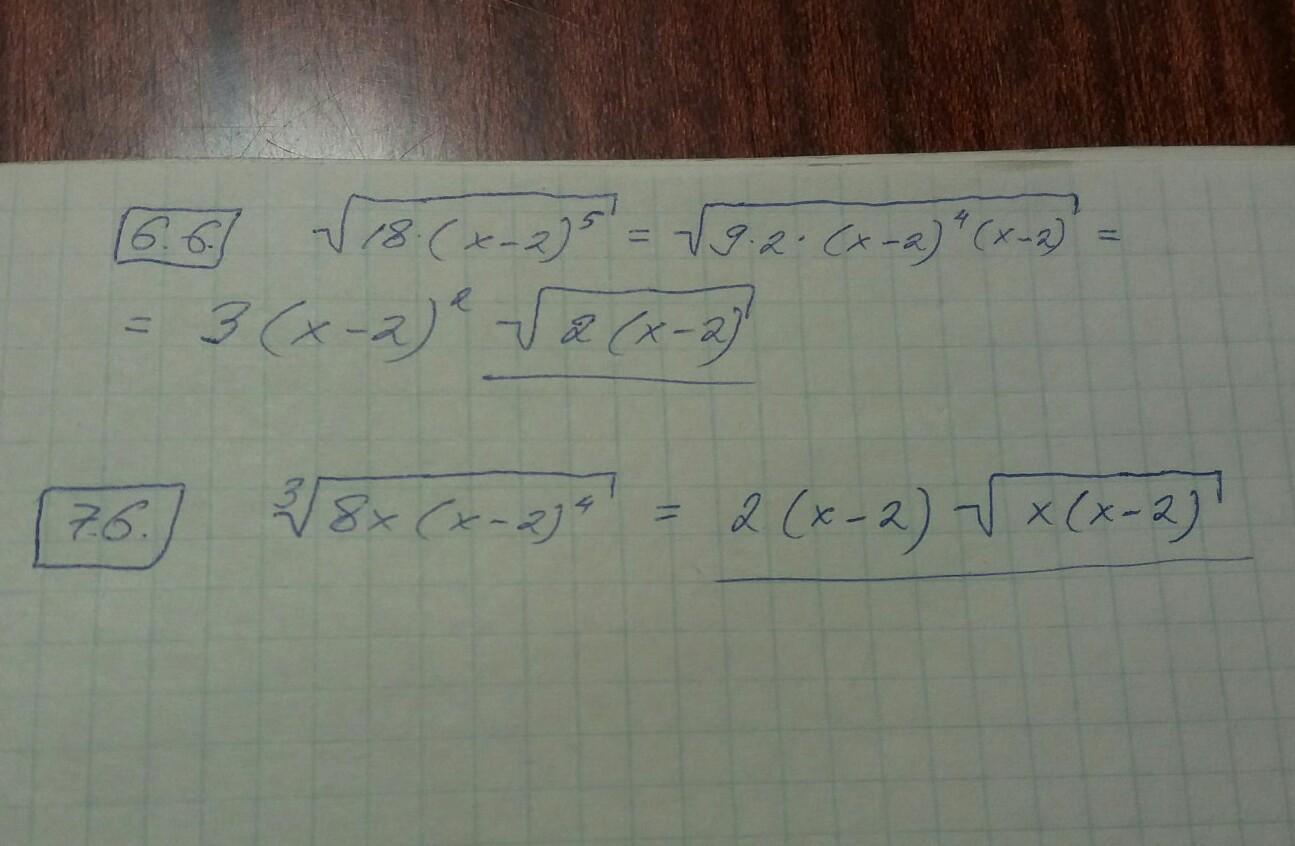 6.6. √18·(x-2)⁵ = √9·2·(x-2)⁴(x-2) =
= 3(x-2)² √2(x-2)
7.6. ³√8x(x-2)⁴ = 2(x-2)√x(x-2)